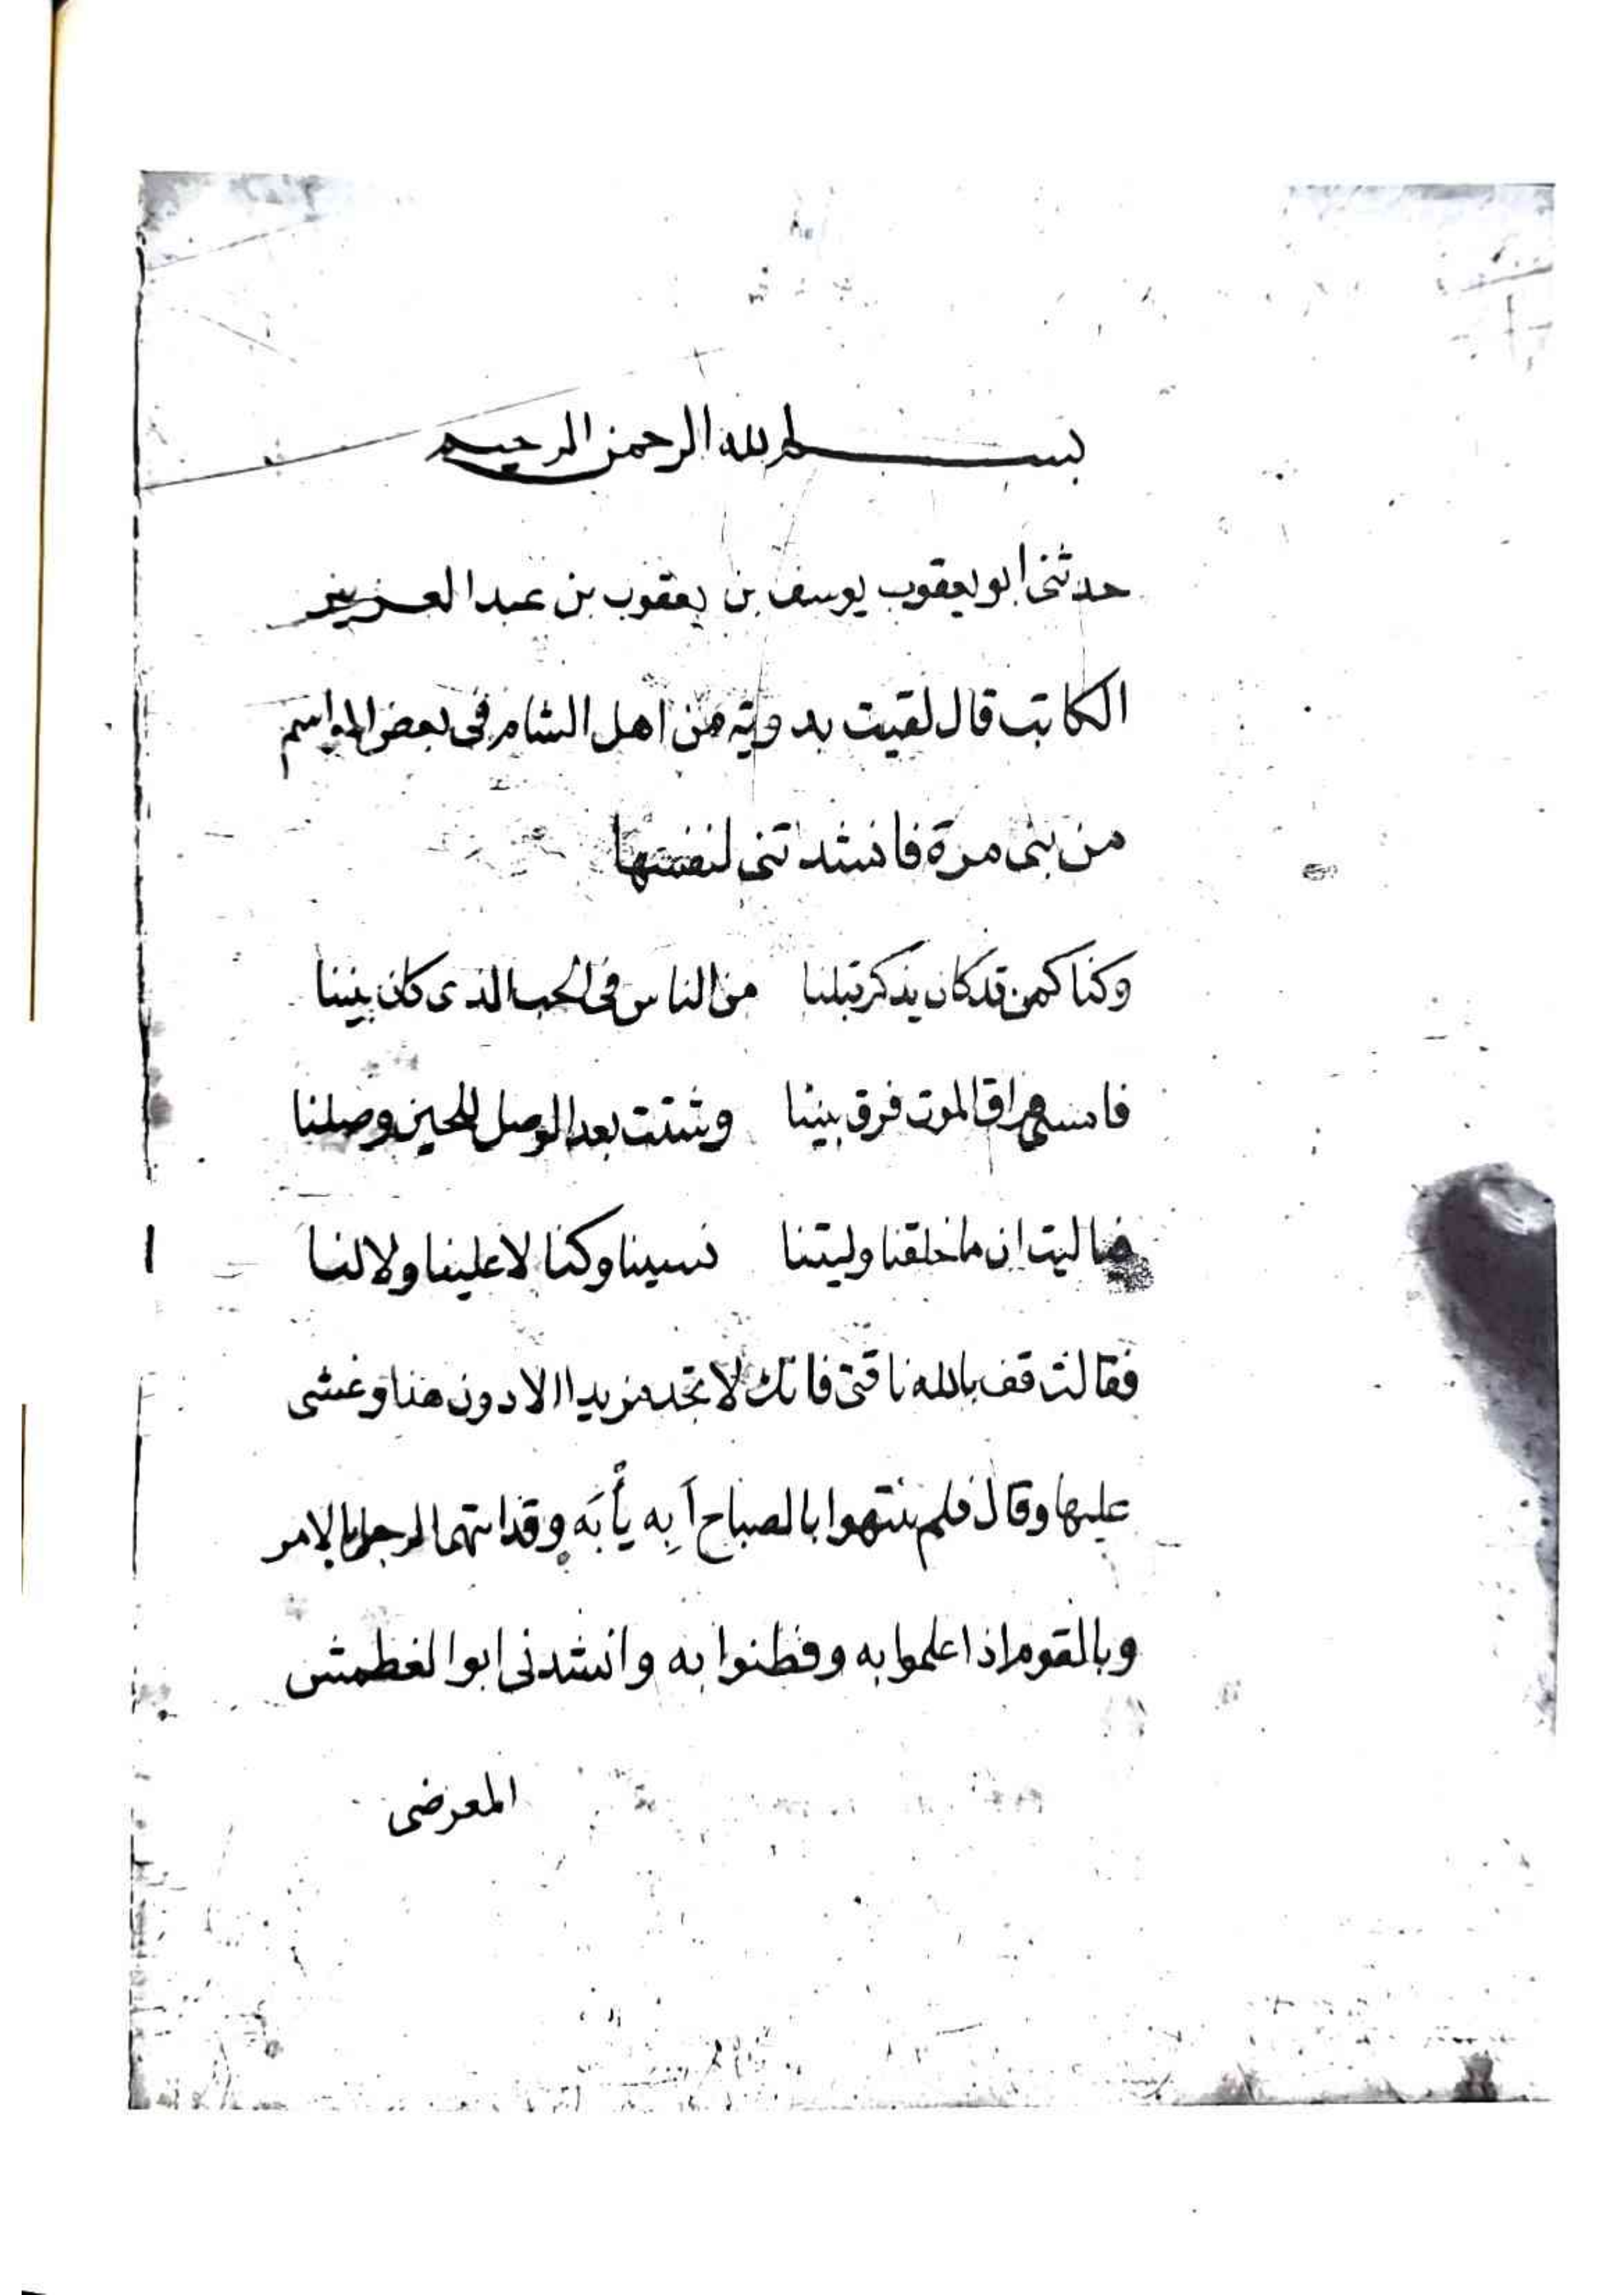 بسم الله الرحمن الرحيم
حدثنى ابو يعقوب يوسف بن يعقوب بن عبد العزيز
الكاتب قال لقيت بدوية من اهل الشام فى بعض المواسم
من بنى مرة فانشدتنى لنفسها
وكنا كمن قد كان يذكر قبلنا من الناس فى الحب الذى كان بيننا
فامسى فراق الموت فرق بيننا وشتت بعد الوصل للحين وصلنا
فيا ليت ان ما خلقنا وليتنا نسينا وكنا لا علينا ولا لنا
فقالت قف بالله ناقتى فانك لا تجد مزيدا الا دون هنا وغشى
عليها وقال فلم ينتهوا بالصباح آبِه يأْبَه وقد اتهم الرجل بالامر
وبالقوم اذا علموا به وفطنوا به وانشدنى ابو الغطمش
المعرضى